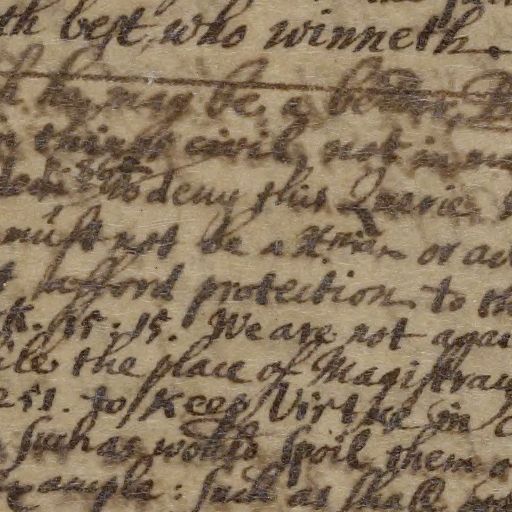 th best, who winneth.
he may be, a better, B
things civil, not in m
to deny this Querie,
must not be a Xtian or ad
afford protection to th
15. 15. We are not agai
the place of Magistracy
to Keep Virtue in
such as would spoil them a
example: such as shall